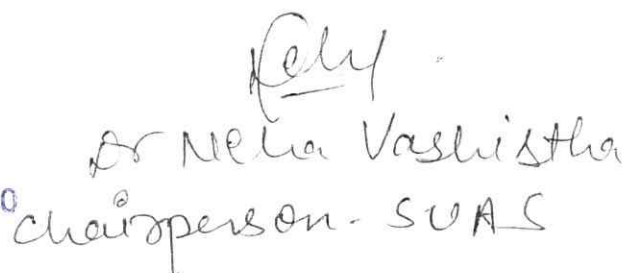 Dr Neha Vashistha
Chairperson - SUAS